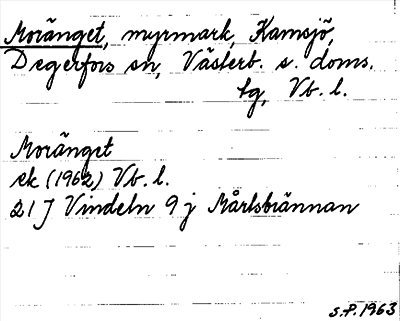 Moränget, myrmark, Kamsjö,
Degerfors sn, Västerb. s. doms.
tg, Vb. l.
Moränget
ek (1962) Vb. l.
21 J Vindeln 9 j Mårtsbrännan
S.P. 1963